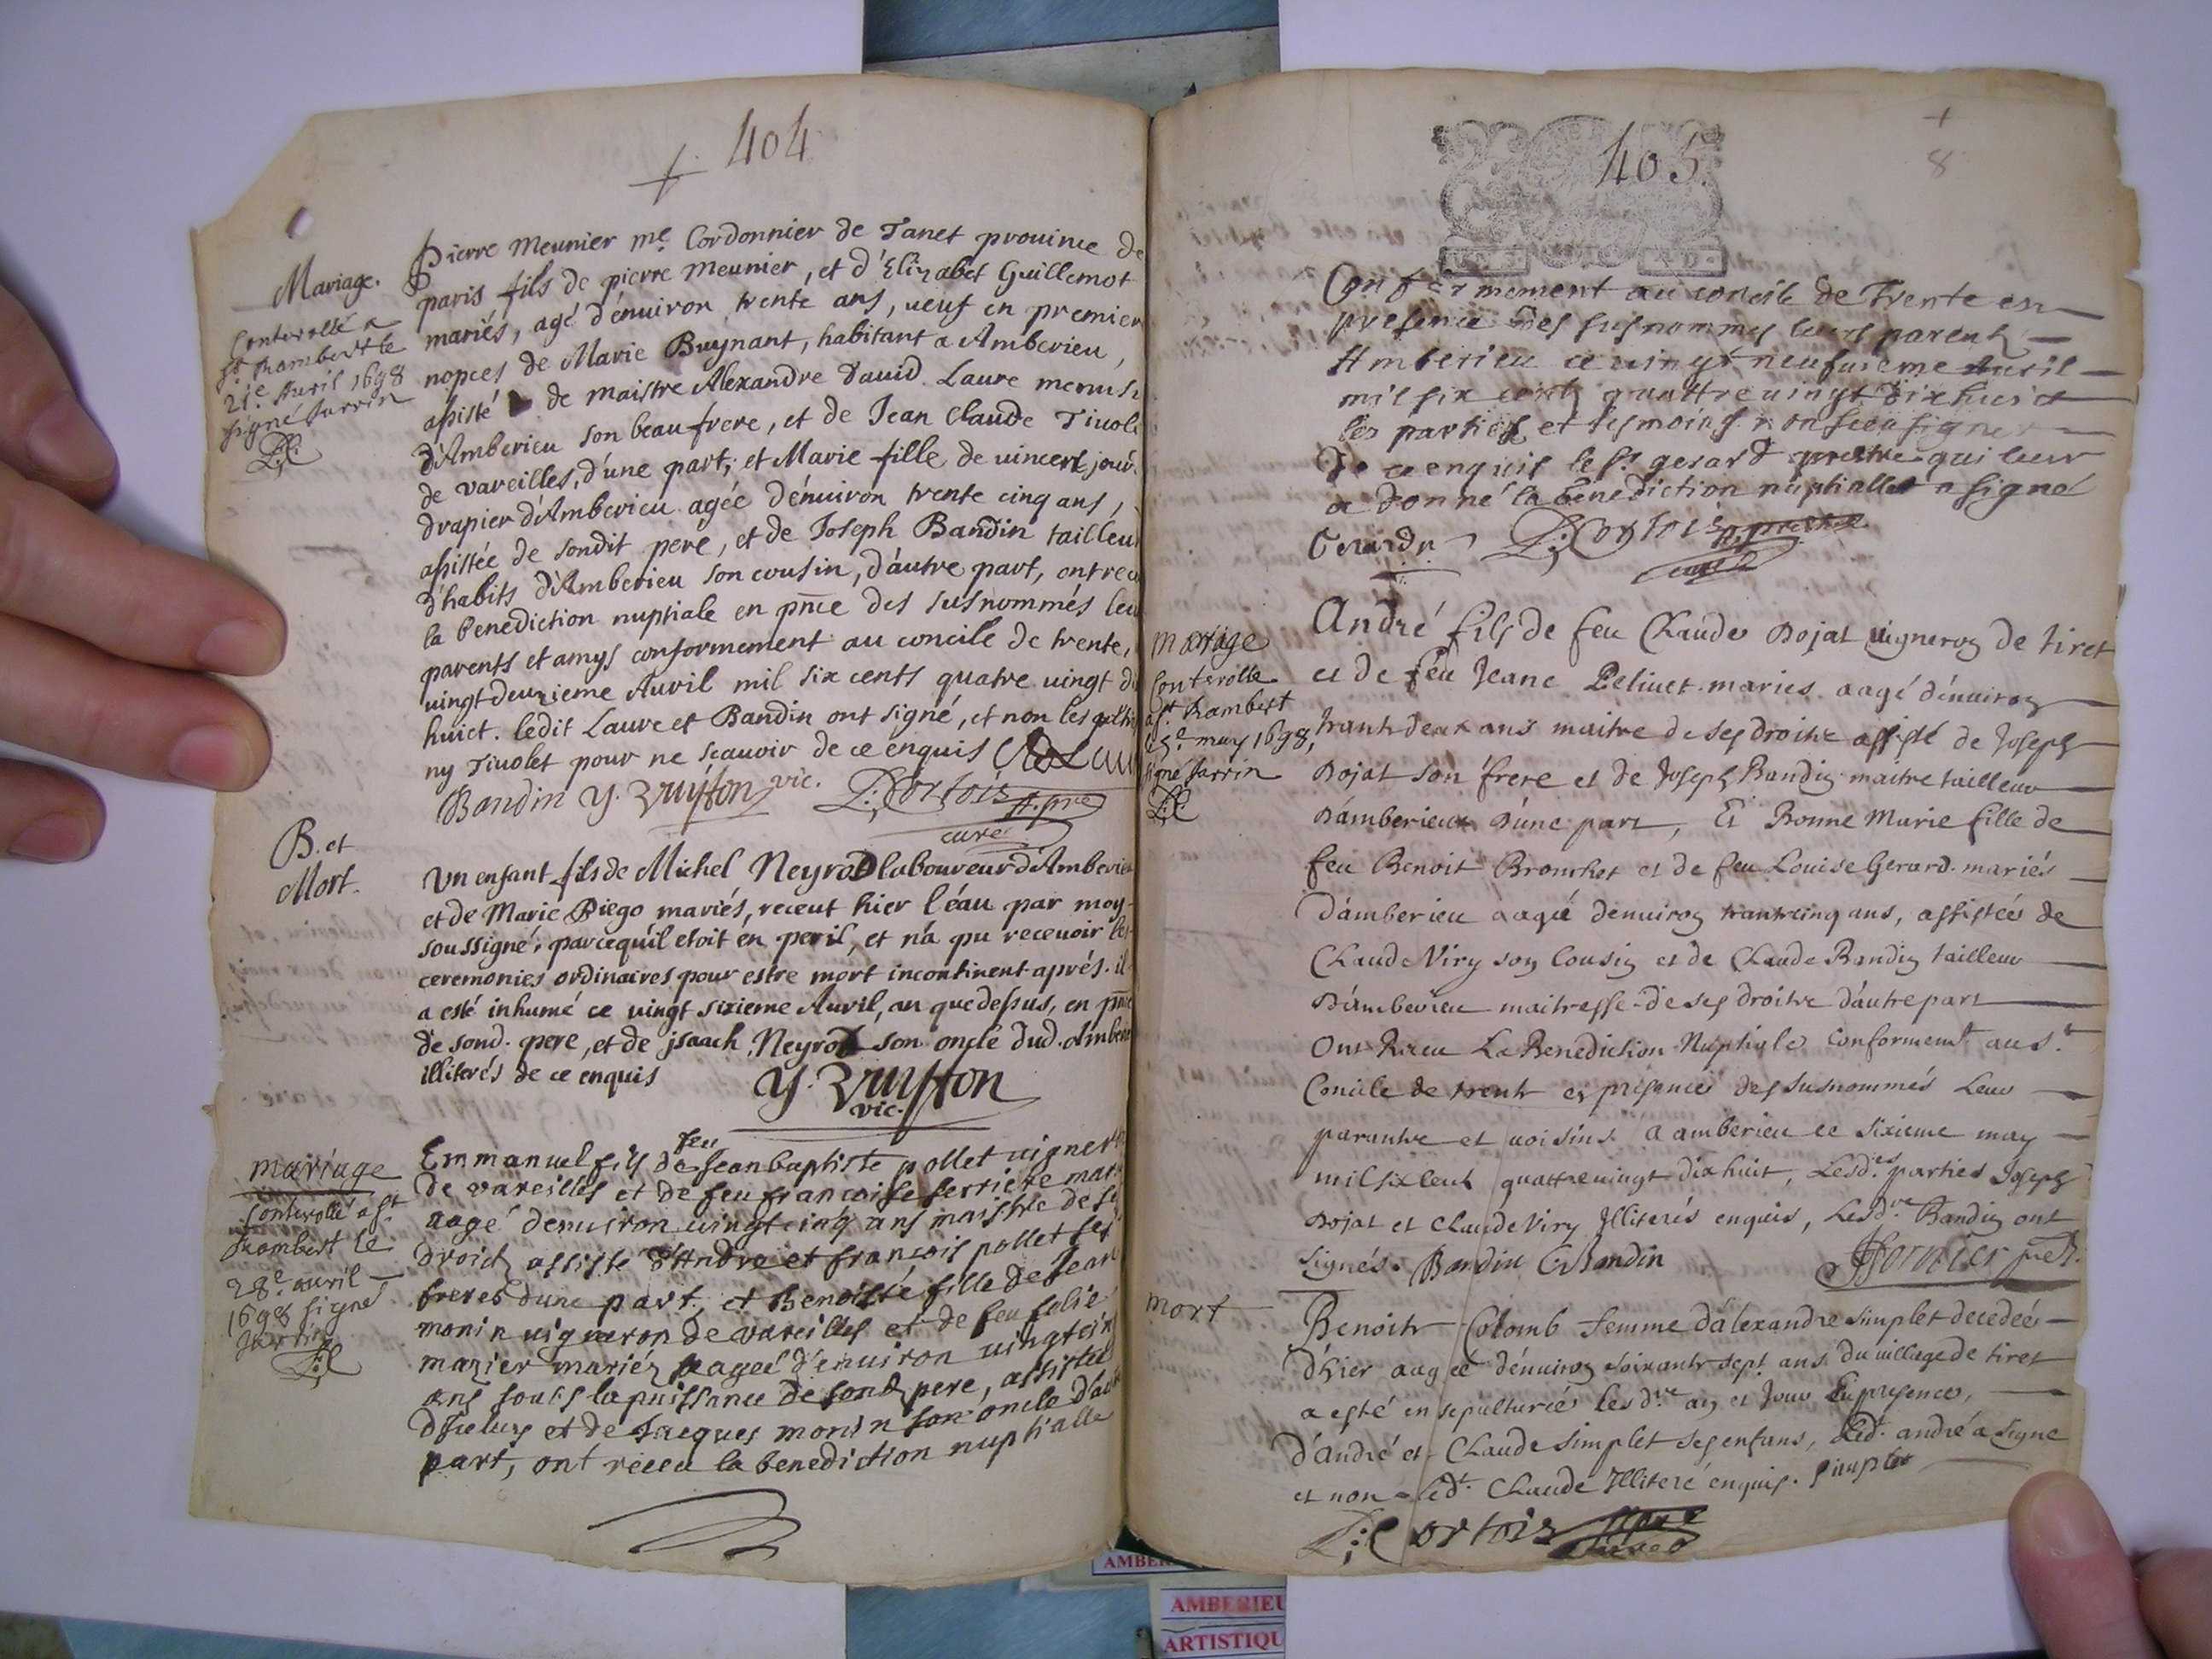 404
Mariage.
Conterollé a
st Rambert le
21e. Auril 1698
signé Jarrin
Pierre Meunier me. Cordonnier de Tanet prouince de
paris fils de pierre Meunier, et d'Elizabet Guillemot
mariés, agé d'énuiron trente ans, ueuf en premier
nopces de Marie Buynant, habitant a Amberieu,
assisté de maistre Alexandre Dauid Laure menus
d'Amberieu son beaufrere, et de Jean Claude Tiuol
de vareilles, d'une part; et Marie fille de uincent
drapier d'Amberieu agée d'énuiron trente cinq ans,
assistée de sondit pere, et de Joseph Bandin tailleu
d'habits d'Amberieu son cousin, d'autre part, ont
la benediction nuptiale en pnce des susnommés
parents et amys conformement au concile de trente,
uingtdeuxieme Auril mil six cents quatre uingt
huict. ledit Laure et Bandin ont signé, et non les
ny Tiuolet pour ne scauoir de ce enquis
Bandin y. Bruyson vic. P. Cortois
curé
B. et
Mort.
Un enfant fils de Michel Neyrod laboureur d'Amberieu
et de Marie Diego mariés, receut hier l'éau par moy
soussigné, parcequ'il etoit en peril, et n'a pu receuoir les
ceremonies ordinaires pour estre mort incontinent aprés. il
a esté inhumé ce uingt sixieme Auril, an que dessus, en pnce
de sond. pere, et de jsaach Neyrod son oncle dud. Amber
illiterés de ce enquis
y. Bruyson
vic.
mariage
Conterollé a st
Rambert le
28e. auril
1698 signé
Jarrin
Emmanuel fils de feu Jean baptiste pollet uigner
de vareilles et de feu francoise ferriere
aagé denuiron uingt cinq ans maistre de
droicts assisté d'Andre et françois pollet ses
freres dune part, et Benoiste fille de Jean
monin uigneron de vareilles et de feu
mazier mariéz aageé d'enuiron uingt
ans soubs la puissance de sond pere, assistée
d'Iceluy et de Jacques monin son oncle
part, ont receu la benediction nuptialle
405.
8
Conformement au concile de Trente en
presence des susnommes leurs parents
Amberieu ce uingt neufuieme Auril
mil six cents quattre uingt dixhuict
les parties et tesmoins n'ont sceu signer
de ce enquis le sr. gerard prestre qui leur
a donné la benediction nuptialle a signé
Gerard P. Cortois
curé
mariage
Conterollé
a st Rambert
may 1698,
signé Jarrin
André fils de feu Claude Dojat uigneron de tiret
et de feu Jeane Peliuet mariés aagé dénuiron
trante deux ans maitre de ses droitx assisté de Joseph
Dojat son frere et de Joseph Bandin maitre tailleur
D'amberieux d'une part, Et Bonne Marie fille de
feu Benoit Brouchet et de feu Louise Gerard mariés
D'amberieu aagée denuiron trantecinq ans, assistée de
Claude Viry son Cousin et de Claude Bandin tailleur
D'amberieu maitresse de ses droitx d'autre part
Ont Receu La Benediction Nuptiale Conformemt. au st.
Concile de trente en présence des susnommés Leur
parantx et uoisins. a amberieu ce sixieme may
mil six Cent quattreuingt dix huit, Lesdes. parties Joseph
Dojat et Claude Viry Illiterés enquis, Lesd. Bandin ont
Signés. Bandin C Bandin
mort
Benoite Colomb femme d'alexandre Simplet decedeé
d'hier aageé dénuiron soixante sept ans du uillage de tiret
a esté ensepulturée lesd. an et Jour En presence,
d'André et Claude Simplet ses enfans, Led. andré a signé
et non led. Claude Illiteré enquis. Simplet
P. Cortois